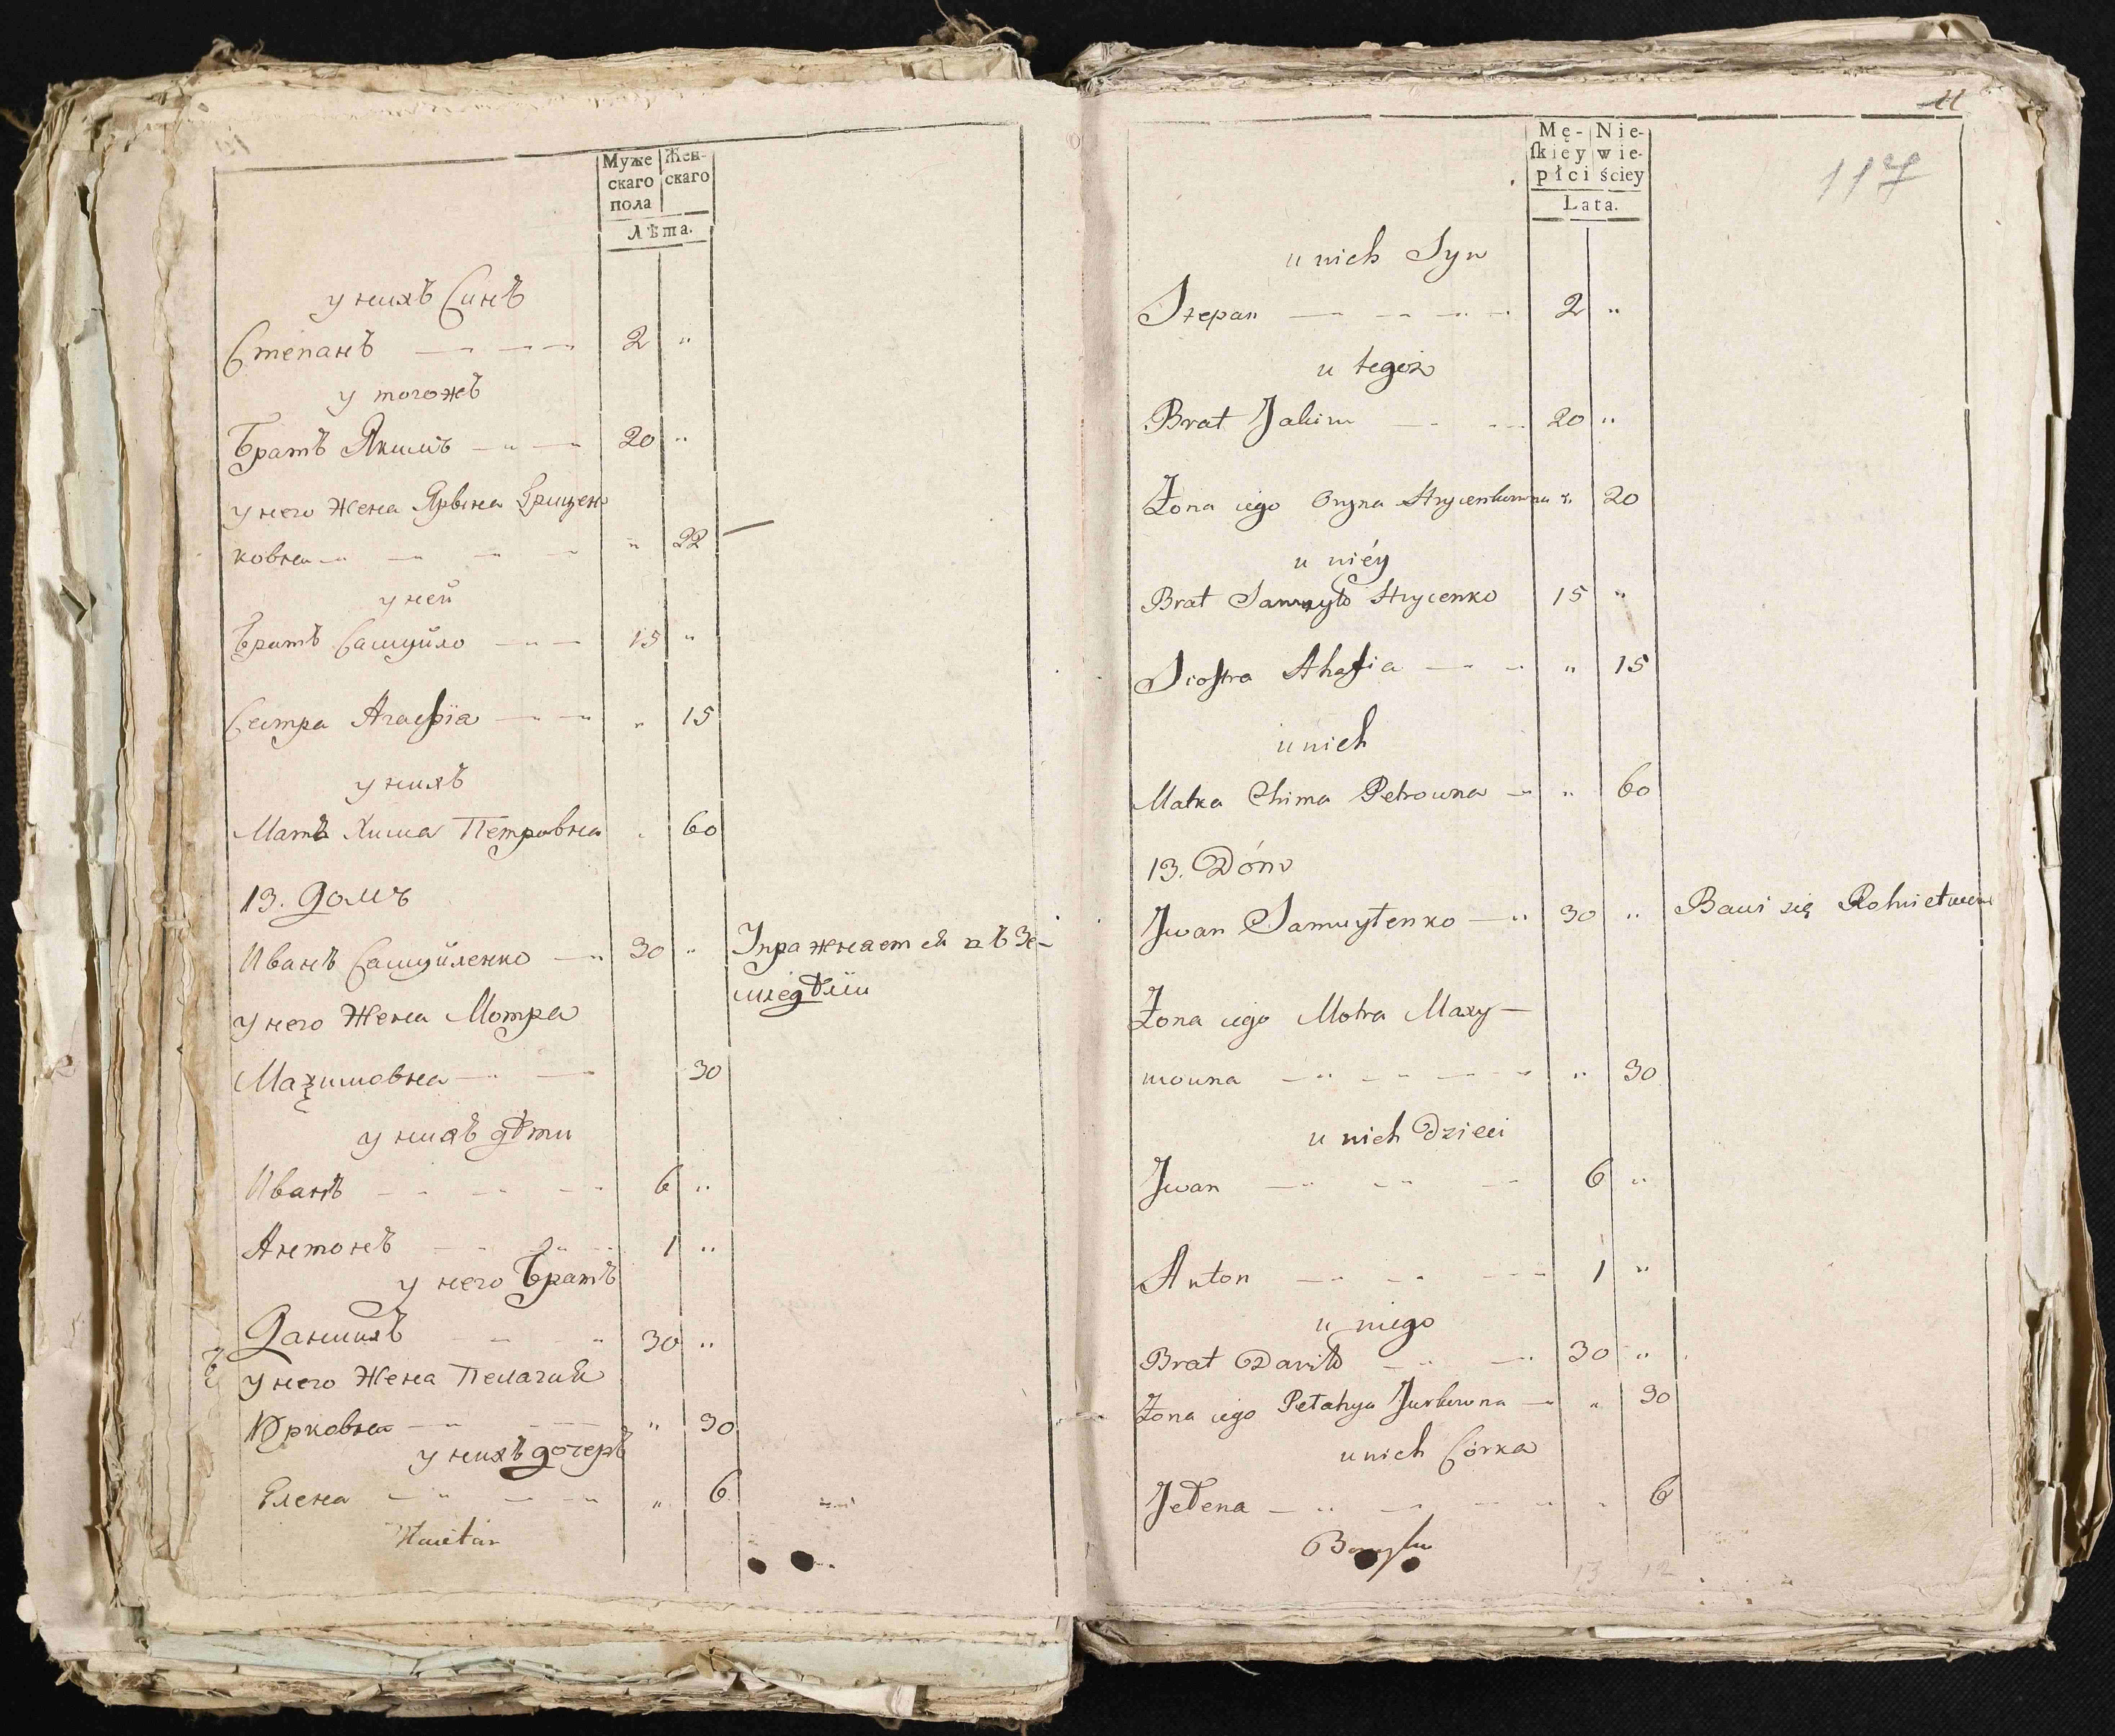 Муже Жен-
скаго скаго
пола
Лѣта.
у нихъ Синъ
Степанъ 2 "
у тогожъ
Братъ Якимъ 20 "
у него Жена Ярына Грицен
ковна " 22
у ней
Братъ Самуйло 15 "
Сестра Агафіа " 15
у нихъ
Матъ Хима Петровна " 60
13. Домъ
Иванъ Самуйленко 30 " Упражнается въ Зе-
мледѣліи
у него Жена Мотра
Маѯимовна 30
у нихъ дѣти
Иванъ 6 "
Антонъ 1 "
у него Братъ
Данилъ 30 "
у него Жена Пелагия
Юрковна " 30
у нихъ дочеръ
Елена " 6
11
117
Mę- Nie-
ſkiey wie-
płci ściey
Lata.
u nich Syn
Stepan 2 "
u tegoż
Brat Jakim 20 "
Żona iego Oryna Hrycenkowna " 20
u niéy
Brat Samuyło Hrycenko 15 "
Siostra Ahafia " 15
u nich
Matka Chima Petrowna " 60
13. Dóm
Jwan Samuyłenko 30 " Bawi się Rolnictwem
Żona iego Motra Maxy-
mowna " 30
u nich Dzieci
Jwan 6 "
Anton 1 "
u niego
Brat Daniło 30 "
Żona iego Pełahya Jurkowna " 30
u nich Córka
Jełena " 6
13 12